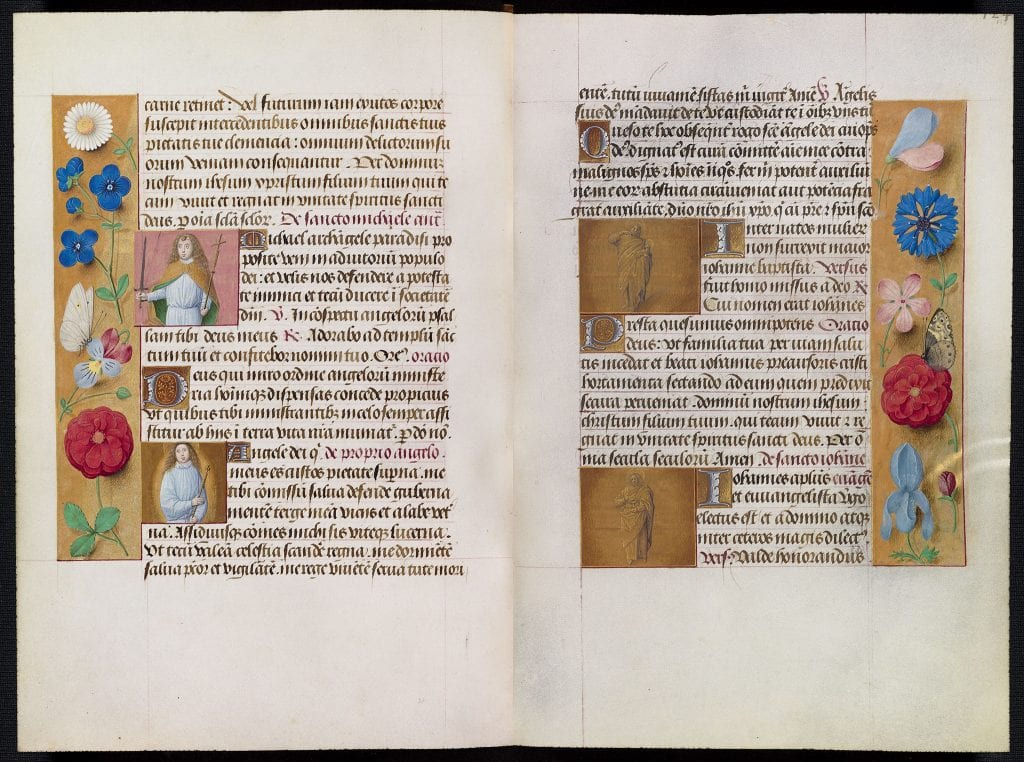 carne retinet: vel futurum iam exutos corpore
suscepit intercedentibus omnibus sanctis tuis
pietatis tue clementia: omnium delictorum su
orum veniam consequantur. Per dominum
nostrum ihesum xpristum filium tuum qui te
cum vivit et regnat in unitate spiritus sancti
deus. p oĩa sclã sclor. De sancto michaele ant
Michael archãgele paradisi pro
posite veni in adiutoriũ populo
dei: et velis nos defendere a potesta
te inimici et tecũ ducere ĩ societatẽ
dñi. V. In cõspectu angelorũ psal
lam tibi deus meus R. Adorabo ad templũ sãc
tum tuũ et confitebor nomini tuo. Oreꝰ. oratio
Deus qui miro ordine angelorũ ministe
ria hoĩmqꝫ dispensas concede propicius
ut quibus tibi ministrantibꝫ in celo semper assi
stitur ab hiis ĩ terra vita nr̃a muniatʳ. p dõ nõ.
Angele dei q̃. de proprio angelo.
meus es custos pietate suꝑna. me
tibi cõmissũ salva defende guberna
mente terge mea vicis et a labe vet̾
na. Assiduusqꝫ comes michi sis viteqꝫ lucerna.
Ut tecũ valeã celestia scande regna. me dormiẽtẽ
salva p̃cor et vigilãtẽ. me rege viventẽ serva tute mori
entẽ. tutũ
Amẽ V Agelis
suis deꝰ mãdavit de te Ut custodiãt te ĩ oĩbꝫ viis tuis
Obsequiũ rogo scẽ ãgele dei
malignos sp̃s
ne me
Inter natos mulier
um non surrexit maior
iohanne baptista. Versus
fuit homo missus a deo R.
Cui nomen erat iohannes
Presta quesumus omnipotens Oratio
deus: ut familia tua per viam salu
tis incedat et beati iohannis precursoris cristi
hortamenta sectando ad eum quem predixit
secura perveniat. dominũ nostrum ihesum
christum filium tuum. qui tecum vivit ⁊ re
gnat in unitate spiritus sancti deus. Per o
ma secula seculorũ Amen. de sancto iohãne
Iohannes aplũs euãge
et evvangelista virgo
electus est et a domino atqꝫ
inter ceteros magis dilectꝰ.
Vers. Valde honorandus